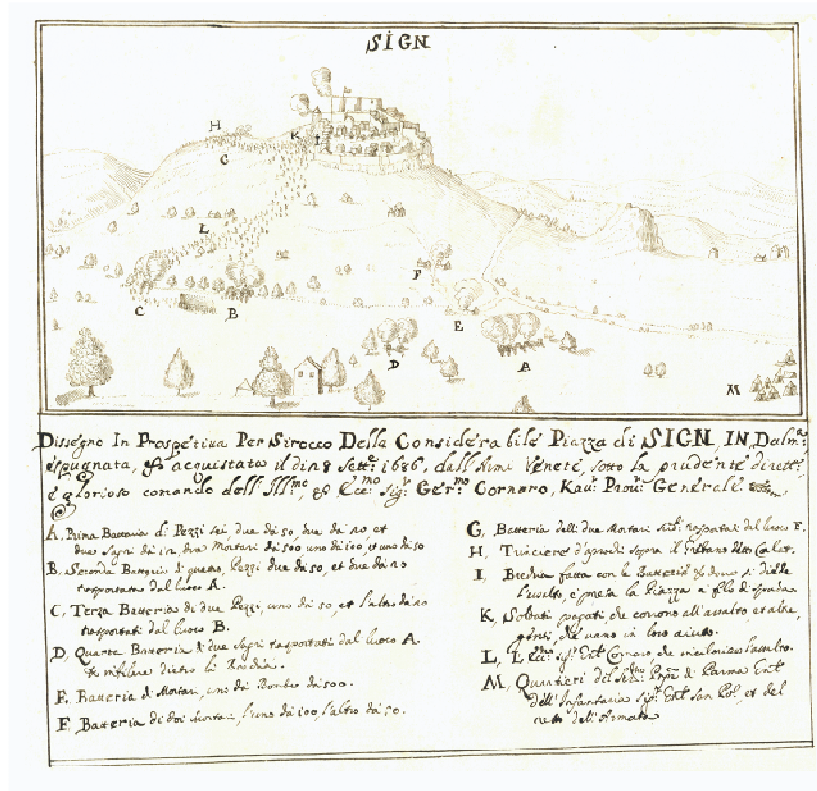 SIGN
H
K
I
G
L
F
C
B
E
D
A
M
Dissegno In Prospetiva Per Sirocco Della Considerabile Piazza di SIGN IN Dalm.a
espugnata, et acquistata il di 28 Sett.e 1686, dall'Armi Venete, sotto la prudente dirett.e
e glorioso comando dell'Ill.mo, et Ecc.mo Sig.r Ger.mo Cornaro, Kav.r Prov.r Generale
A, Prima Battaria di Pezzi sei, due da 50, due da 20 et
due Sagri da 12, due Mortari da 500 uno da 100, et uno da 50
B, Seconda Battaria di quatro, Pezzi due da 50, et due da 20
trasportata dal luoco A.
C, Terza Batteria di due Pezzi, uno da 50, et l'altro da 20
trasportati dal luoco B.
D, Quarta Batteria di due Sagri trasportati dal luoco A.
dietro la
E, Batteria di Mortari, uno da Bombe da 500.
F, Batteria di doi Mortari, l'uno da 100, l'altro da 50.
G, Batteria dell'due Mortari trasportati dal luoco F.
H, Trinciere sopra il
I, Brechia fatta con le Batterie si diede
l'assalto, e presa la Piazza a filo di spada
K, Soldati pagati, che corrono all'assalto, et altre
genti, che vano in loro aiuto.
L, L'Ecc.mo Sig.r Cornaro, che l'assalto.
M, Quartieri del Pnpe di Parma
dell'Infantaria Sig.r San Pol, et del
resto dell'Armata